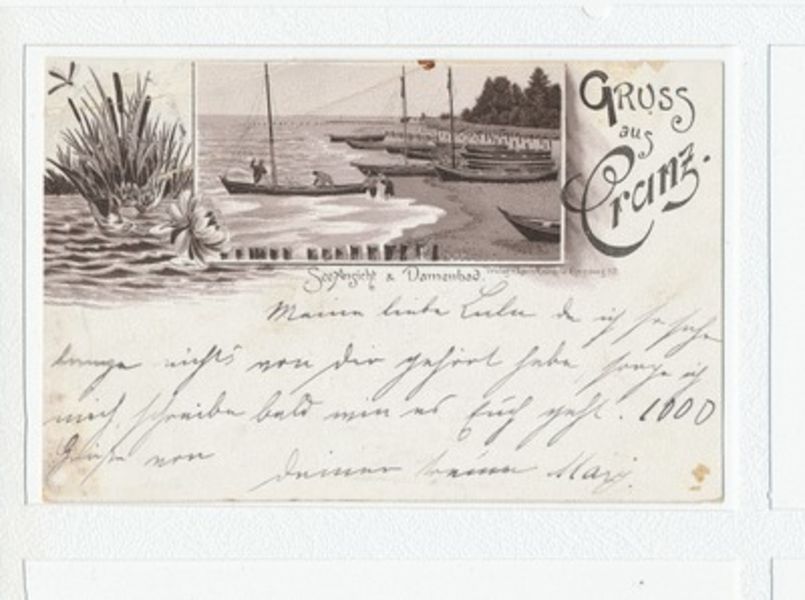 Gruss
aus
Cranz.
Seeansicht & Damenbad.
Meine liebe Lulu da ich so sehr
lange nichts von dir gehört habe, sorge ich
mich, schreibe bald wie es Euch geht. 1000
Grüße von
deiner treuen